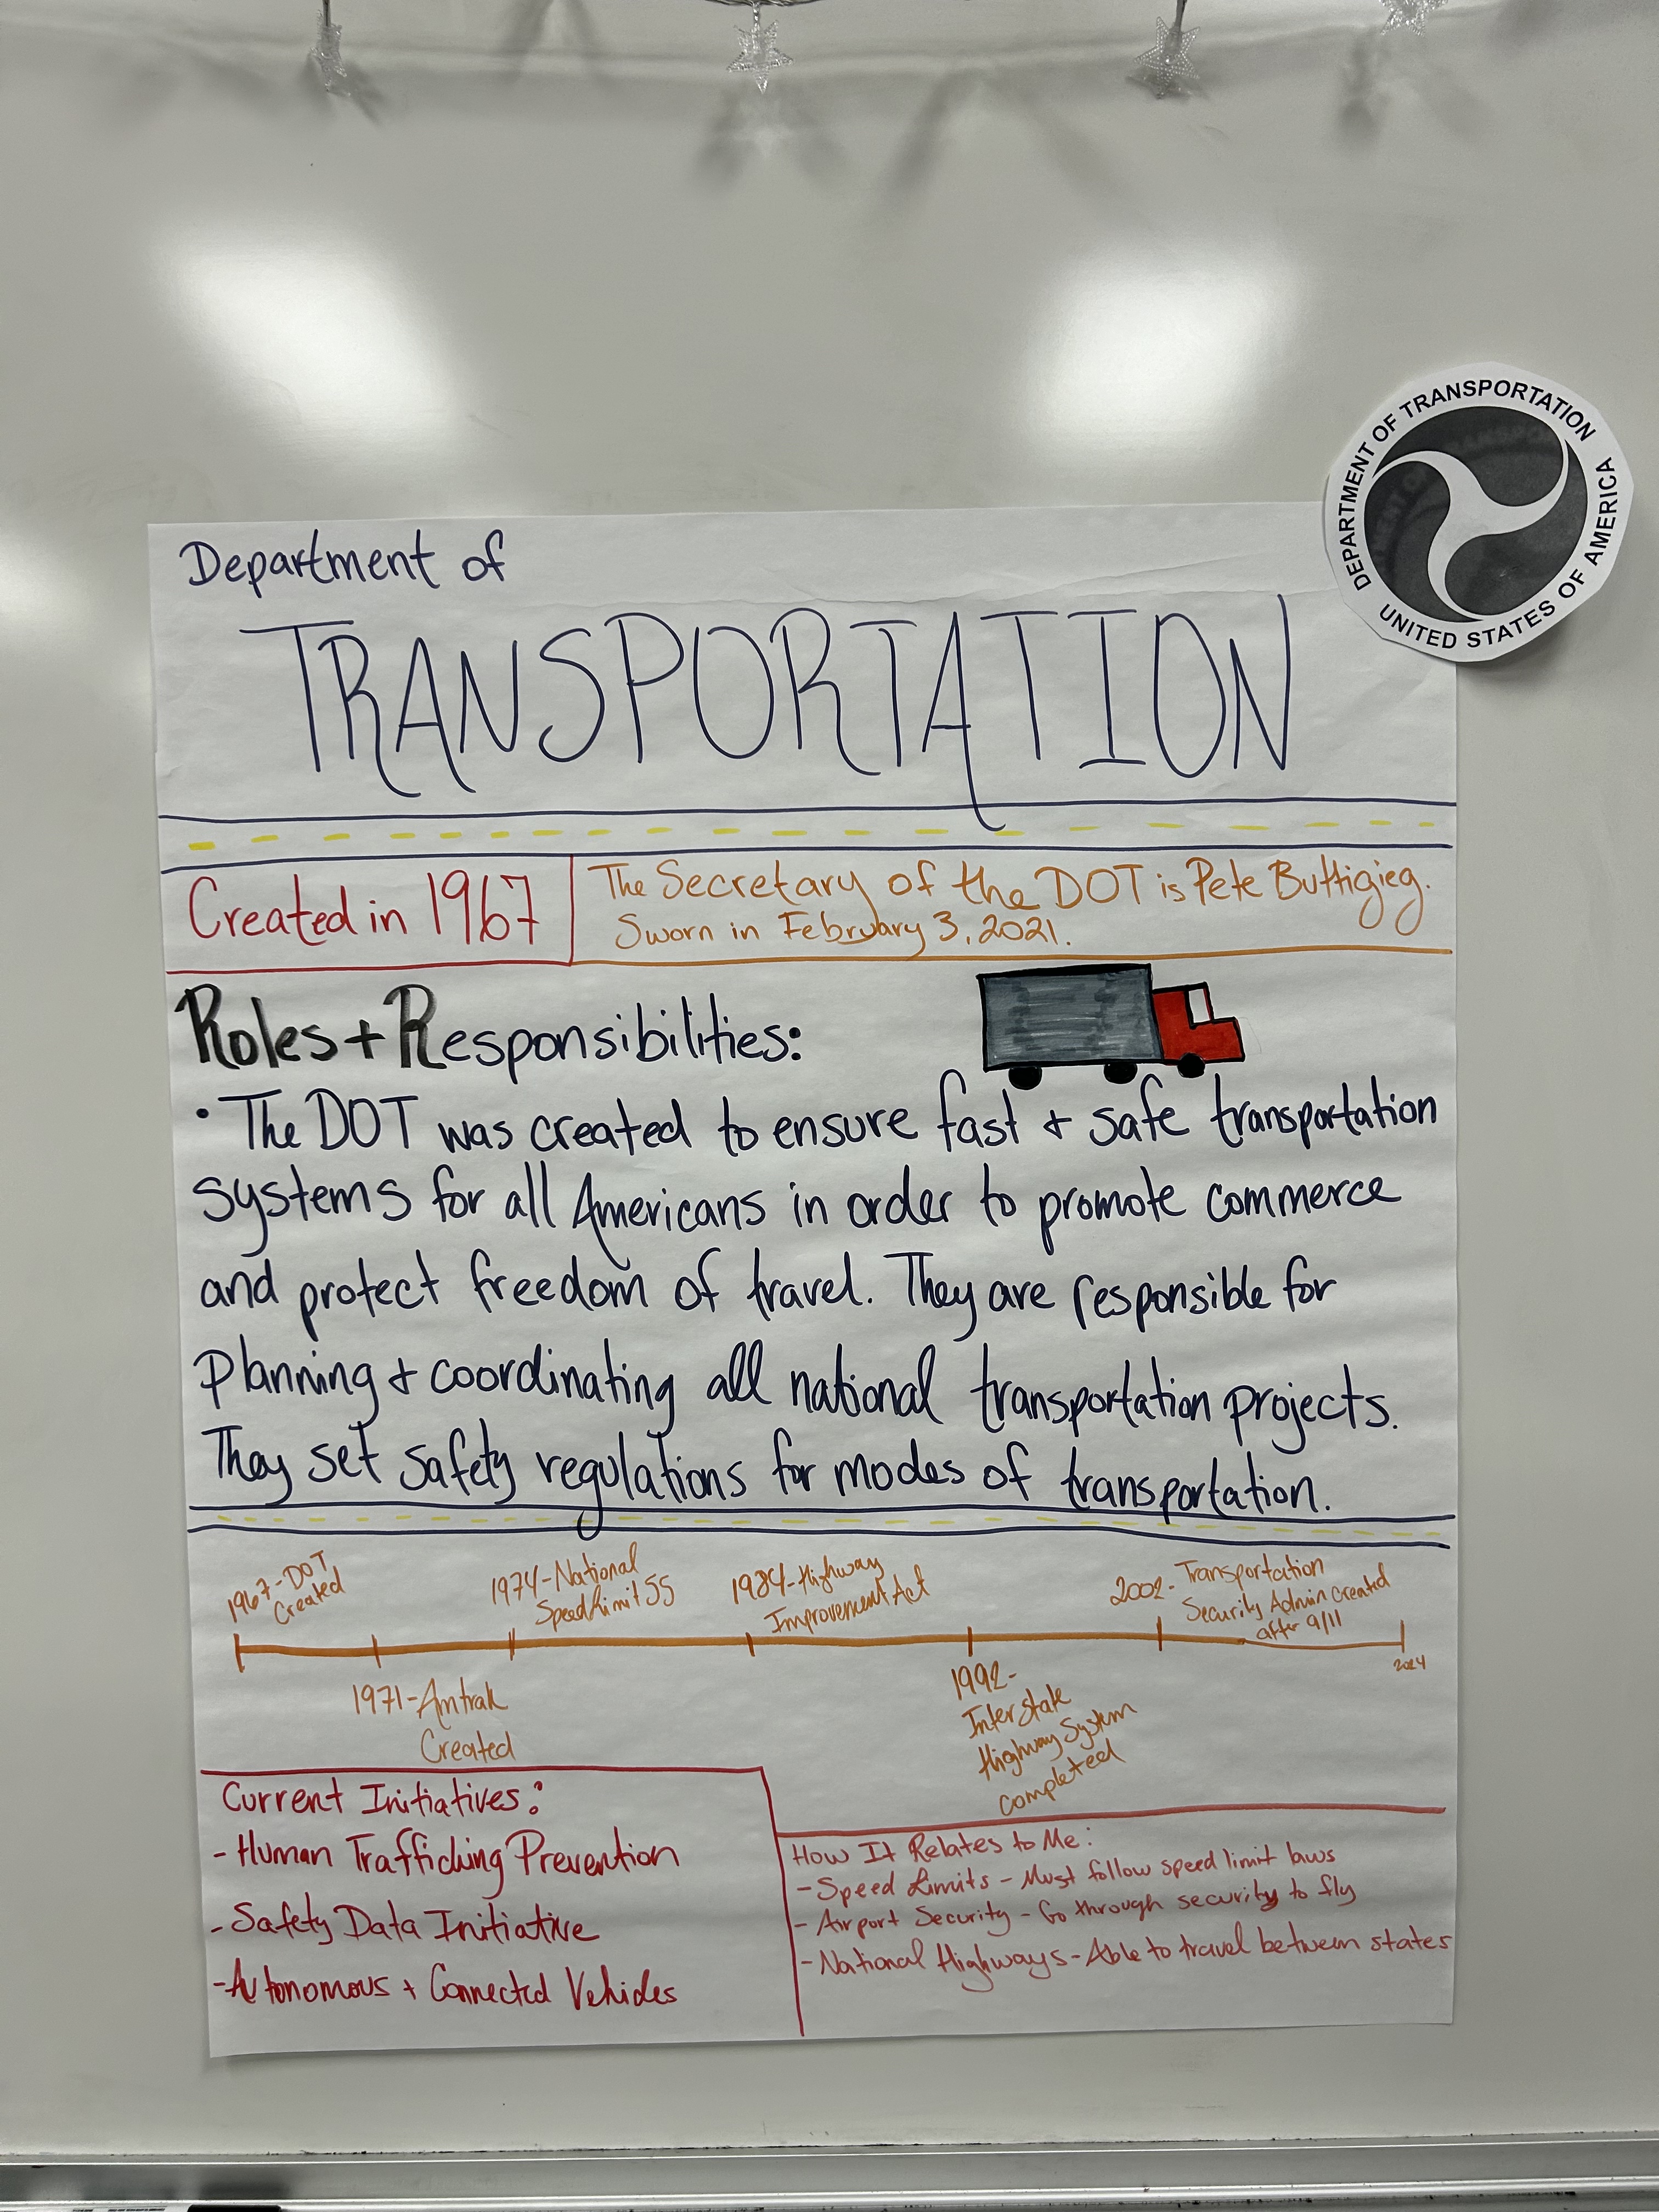 DEPARTMENT OF TRANSPORTATION
UNITED STATES OF AMERICA
Department of
TRANSPORTATION
Created in 1967
The Secretary of the DOT is Pete Buttigieg.
Sworn in February 3, 2021.
Roles + Responsibilities:
• The DOT was created to ensure fast + safe transportation
systems for all Americans in order to promote commerce
and protect freedom of travel. They are responsible for
planning + coordinating all national transportation projects.
They set safety regulations for modes of transportation.
1967-DOT
Created
1974-National
Speed Limit 55
1984-Highway
Improvement Act
2002- Transportation
Security Admin created
after 9/11
2024
1971-Amtrak
Created
1992-
Interstate
Highway System
completed
Current Initiatives:
- Human Trafficking Prevention
- Safety Data Initiative
- Autonomous + Connected Vehicles
How It Relates to Me:
- Speed Limits - Must follow speed limit laws
- Airport Security - Go through security to fly
- National Highways - Able to travel between states